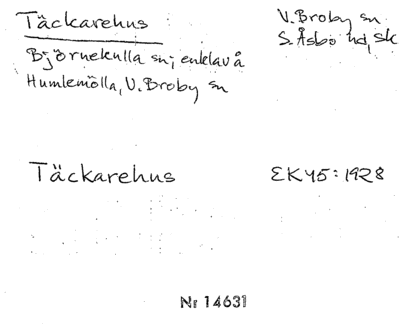 Täckarehus
V. Broby sn
S. Åsbo hd, Sk
Björnekulla sn; enklav å
Humlemölla, V. Broby sn
Täckarehus
EK45:1928
Nr 14631